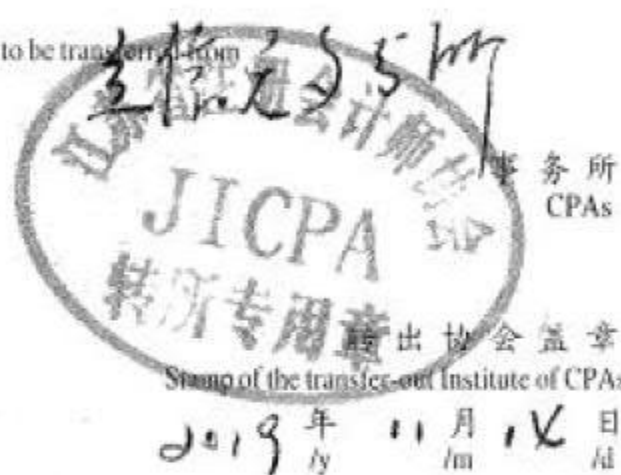 to be transferred from
江苏省注册会计师协会
事务所
CPAs
JICPA
转所专用章
转出协会盖章
Stamp of the transfer-out Institute of CPAs
2019年 11月 日
/y /m /d